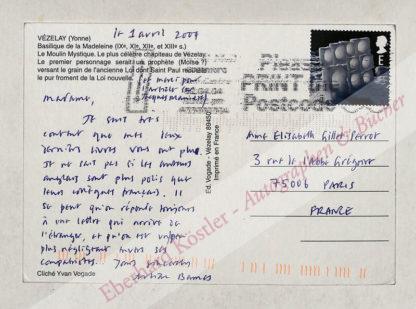 le 1 avril 2007
VÉZELAY (Yonne)
Basilique de la Madeleine (IXe, XIe, XIIe, et XIIIe s.)
Le Moulin Mystique. Le plus célèbre chapiteau de Vézelay
Le premier personnage serait un prophète (Moïse ?)
versant le grain de l'ancienne Loi dont Saint Paul
le pur froment de la Loi nouvelle.
et merci pour
l'article
Madame,
Je suis très
content que mes deux
derniers livres vous ont plu.
Je ne sais pas si les auteurs
anglais sont plus polis que
leurs collègues français. Il
se peut qu'on réponde toujours
à une lettre qui arrive de
l'étranger, et qu'on est un peu
plus négligeant envers ses
compatriotes. Yours sincerely
Julian Barnes
Cliché Yvan Vogade
Ed. Vogade - Vézelay 89450
Imprimé en France
Please
PRINT
Postcode
E
Mme Elisabeth Gillet-Perrot
3 rue de l'Abbé Grégoire
75006 PARIS
FRANCE
Eberhard Köstler - Autographen & Bücher